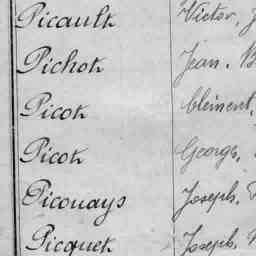 Picault Victor,
Pichot Jean. B
Picot Clément,
Picot Georges,
Picouays Joseph.
Picquet Joseph.